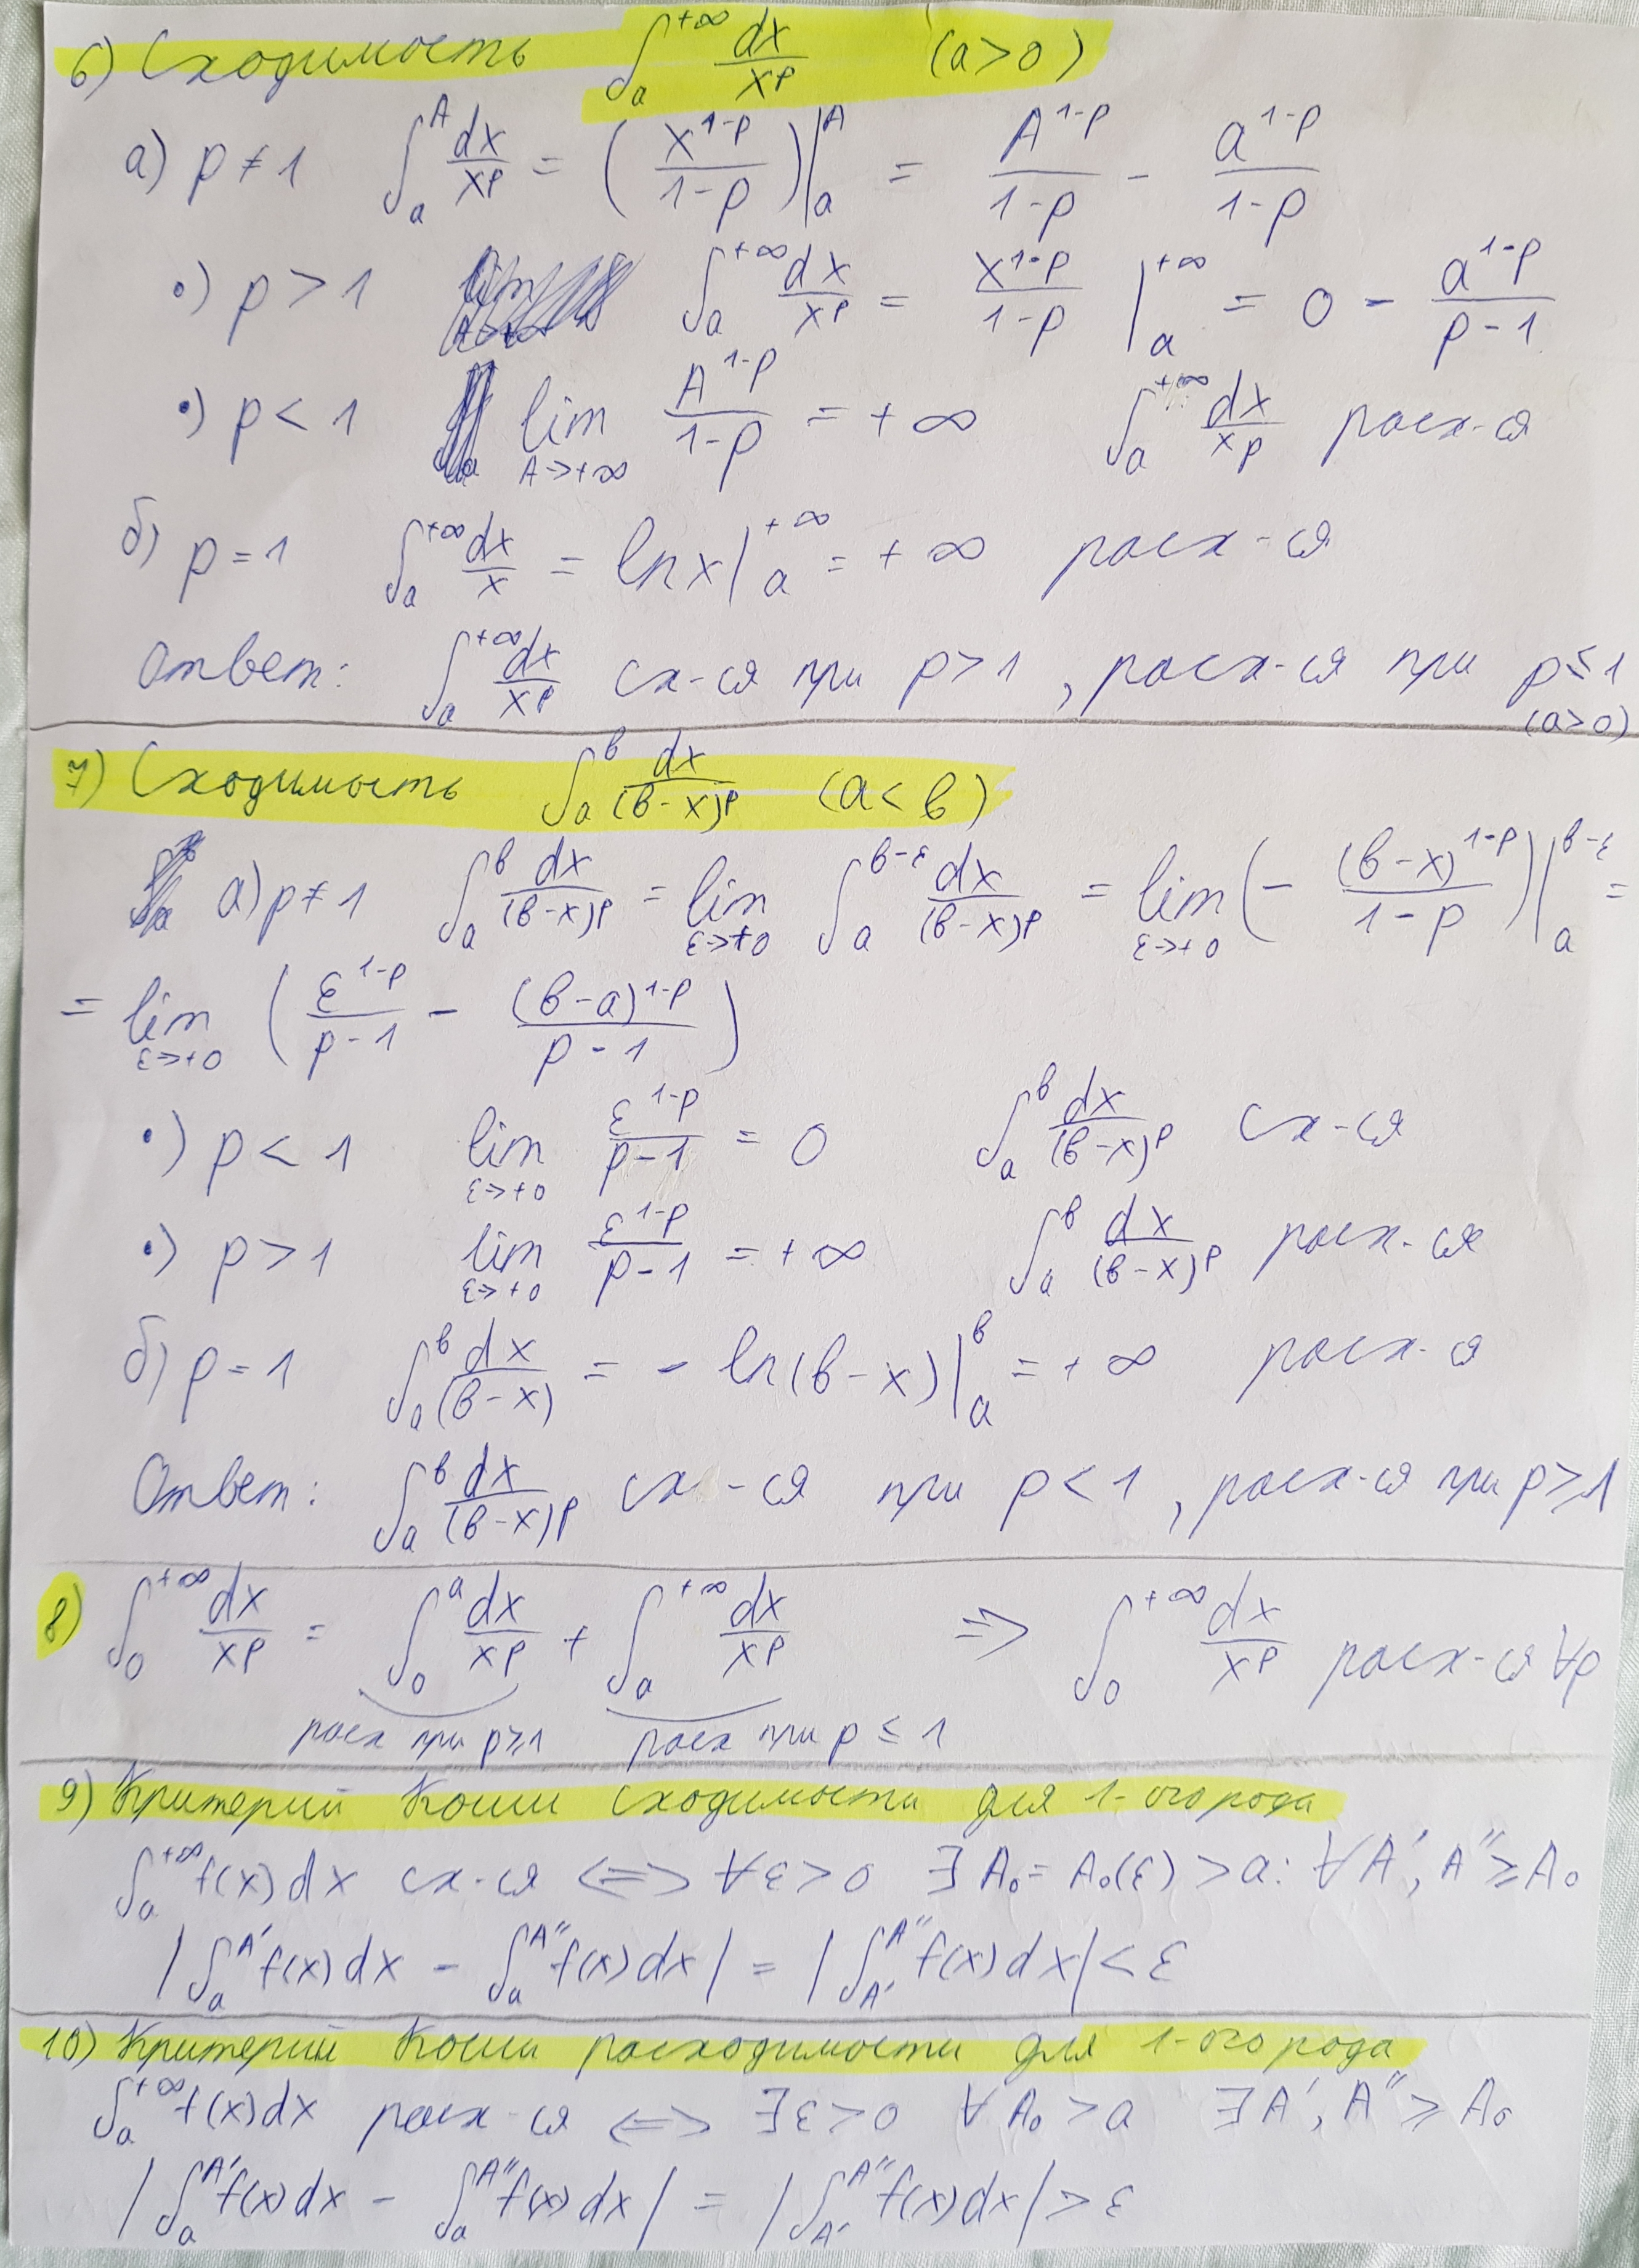 6) Сходимость ∫_a^{+∞} dx/x^p (a>0)
а) p ≠ 1 ∫_a^A dx/x^p = (x^{1-p}/(1-p))|_a^A = A^{1-p}/(1-p) - a^{1-p}/(1-p)
•) p > 1 ∫_a^{+∞} dx/x^p = x^{1-p}/(1-p) |_a^{+∞} = 0 - a^{1-p}/(p-1)
•) p < 1 lim_{A->+∞} A^{1-p}/(1-p) = +∞ ∫_a^{+∞} dx/x^p расх-ся
б) p = 1 ∫_a^{+∞} dx/x = ln x|_a^{+∞} = +∞ расх-ся
Ответ: ∫_a^{+∞} dx/x^p сх-ся при p > 1, расх-ся при p ≤ 1
(a>0)
7) Сходимость ∫_a^b dx/(b-x)^p (a<b)
а) p ≠ 1 ∫_a^b dx/(b-x)^p = lim_{ε->+0} ∫_a^{b-ε} dx/(b-x)^p = lim_{ε->+0} (- (b-x)^{1-p}/(1-p))|_a^{b-ε} =
= lim_{ε->+0} (ε^{1-p}/(p-1) - (b-a)^{1-p}/(p-1))
•) p < 1 lim_{ε->+0} ε^{1-p}/(p-1) = 0 ∫_a^b dx/(b-x)^p сх-ся
•) p > 1 lim_{ε->+0} ε^{1-p}/(p-1) = +∞ ∫_a^b dx/(b-x)^p расх-ся
б) p = 1 ∫_a^b dx/(b-x) = - ln(b-x)|_a^b = +∞ расх-ся
Ответ: ∫_a^b dx/(b-x)^p сх-ся при p < 1, расх-ся при p ≥ 1
8) ∫_0^{+∞} dx/x^p = ∫_0^a dx/x^p + ∫_a^{+∞} dx/x^p => ∫_0^{+∞} dx/x^p расх-ся ∀p
расх при p≥1 расх при p ≤ 1
9) Критерий Коши сходимости для 1-ого рода
∫_a^{+∞} f(x)dx сх-ся <=> ∀ε>0 ∃A₀ = A₀(ε) > a: ∀A', A'' ≥ A₀
|∫_a^{A'} f(x)dx - ∫_a^{A''} f(x)dx| = |∫_{A'}^{A''} f(x)dx| < ε
10) Критерий Коши расходимости для 1-ого рода
∫_a^{+∞} f(x)dx расх-ся <=> ∃ε>0 ∀A₀ > a ∃A', A'' ≥ A₀
|∫_a^{A'} f(x)dx - ∫_a^{A''} f(x)dx| = |∫_{A'}^{A''} f(x)dx| > ε